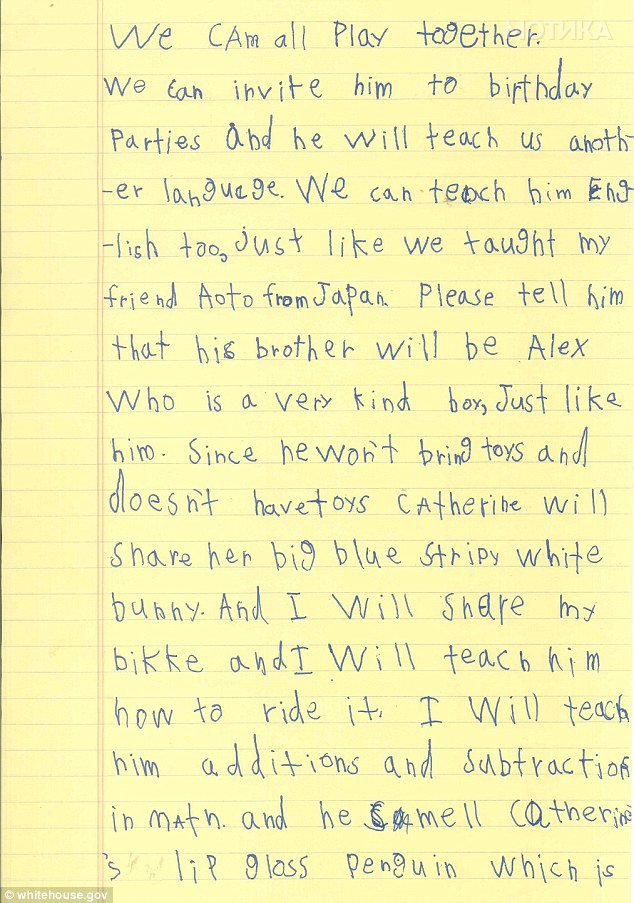 ЧОТИКА
We CAm all Play together.
We can invite him to birthday
Parties and he will teach us anoth-
-er language. We can teach him Eng
-lish too, just like we taught my
friend Aoto from Japan. Please tell him
that his brother will be Alex
Who is a very kind boy, Just like
him. Since he won't bring toys and
doesn't have toys CAtherine will
share her big blue stripy white
bunny. And I Will share my
bikke and I Will teach him
how to ride it. I Will teach
him additions and subtractions
in mAth. and he smell Catherine
's lip gloss penguin which is
© whitehouse.gov